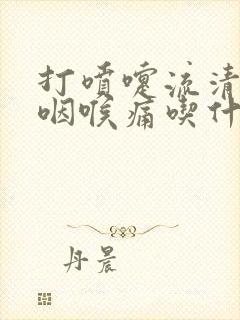 打喷嚏流清
咽喉痛喫什
丹晨